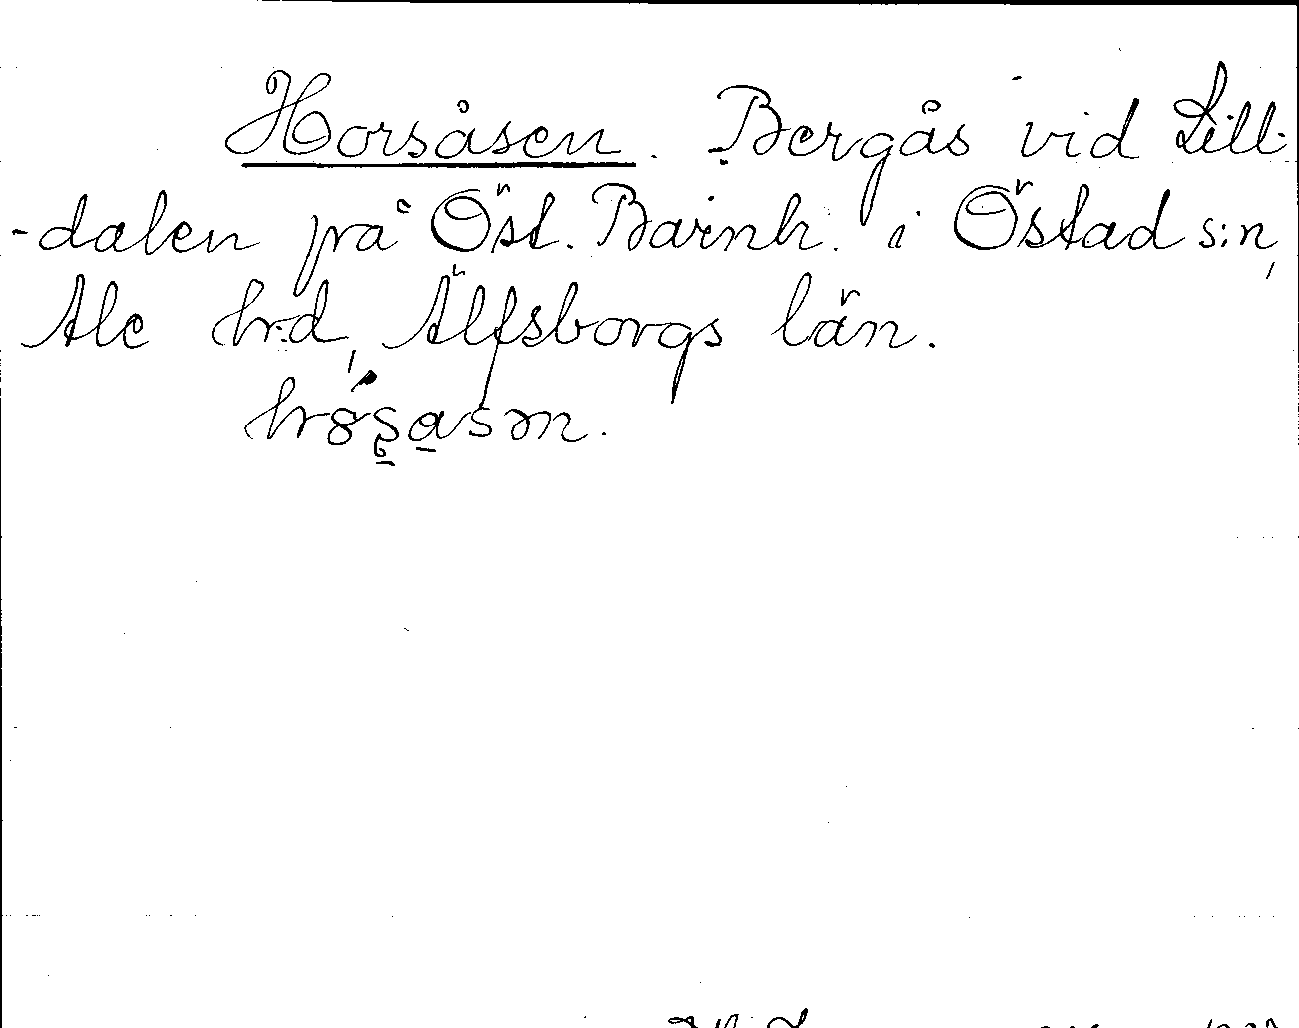 Horsåsen. Bergås vid Lill-
-dalen på Öst. Barnh. i Östad s:n,
Ale hrd, Älfsborgs län.